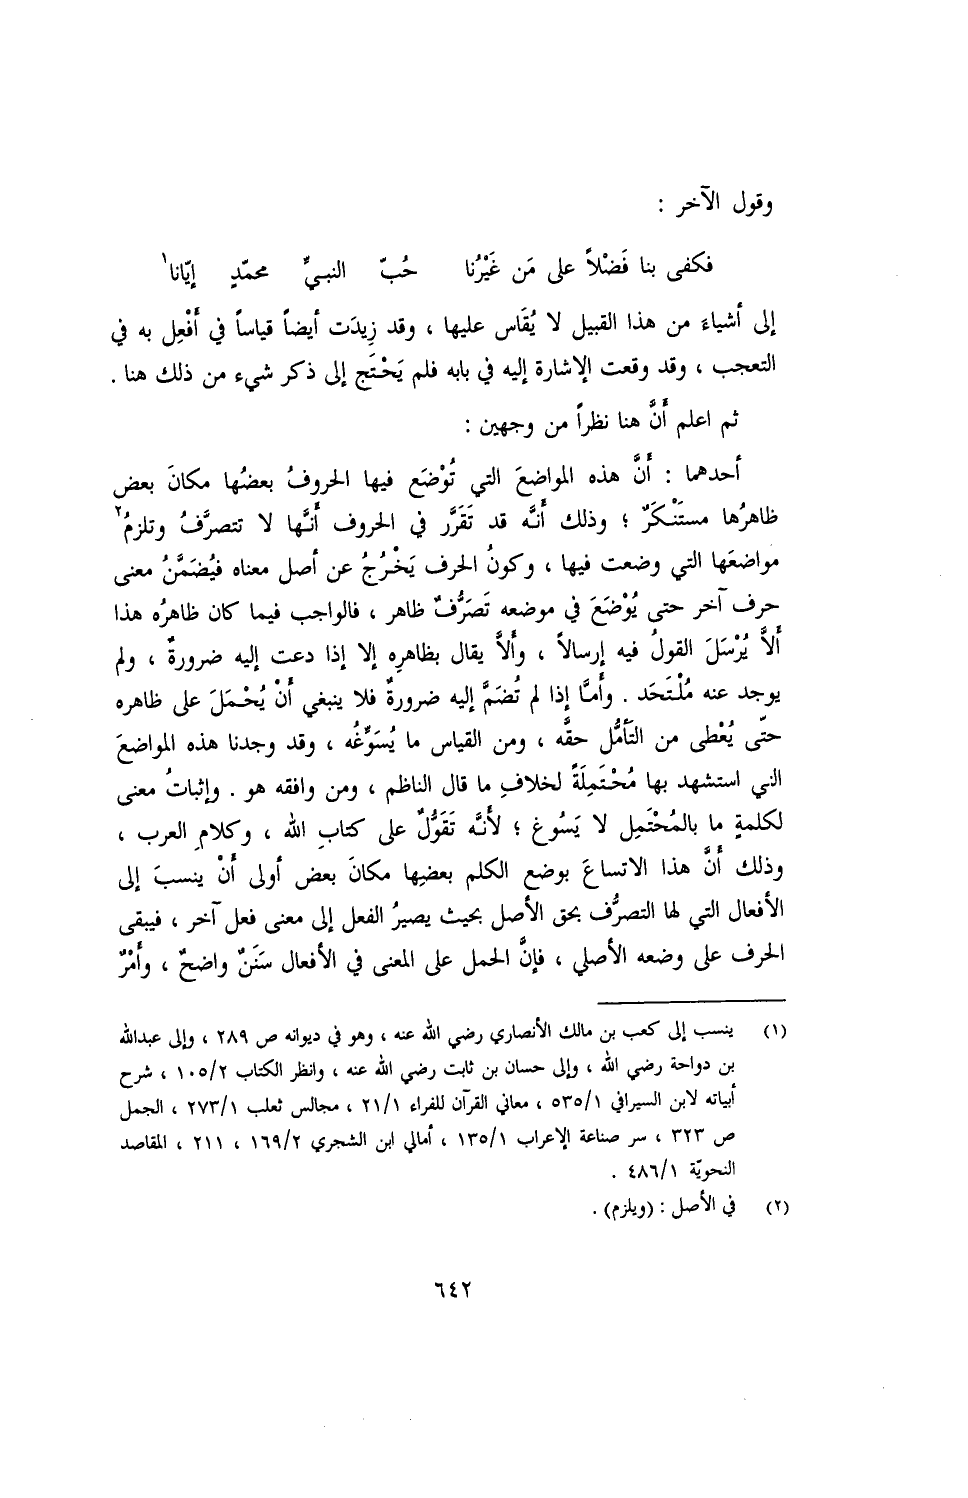 وقول الآخر :
فكفى بنا فَضْلاً على مَن غَيْرُنا حُبّ النبيِّ محمّدٍ إيّانا١
إلى أشياءَ من هذا القبيل لا يُقَاس عليها ، وقد زِيدَت أيضاً قياساً في أَفْعِل به في
التعجب ، وقد وقعت الإشارة إليه في بابه فلم يَحْتَج إلى ذكر شيء من ذلك هنا .
ثم اعلم أَنَّ هنا نظراً من وجهين :
أحدهما : أَنَّ هذه المواضعَ التي تُوْضَع فيها الحروفُ بعضُها مكانَ بعض
ظاهرُها مستَنْكَرٌ ؛ وذلك أَنَّه قد تَقَرَّر في الحروف أَنَّها لا تتصرَّفُ وتلزمُ٢
مواضعَها التي وضعت فيها ، وكونُ الحرف يَخْرُجُ عن أصل معناه فيُضَمَّنُ معنى
حرف آخر حتى يُوْضَعَ في موضعه تَصَرُّفٌ ظاهر ، فالواجب فيما كان ظاهرُه هذا
أَلاَّ يُرْسَلَ القولُ فيه إرسالاً ، وأَلاَّ يقال بظاهرِه إلا إذا دعت إليه ضرورةٌ ، ولم
يوجد عنه مُلْتَحَد . وأَمَّا إذا لم تُضَمَّ إليه ضرورةٌ فلا ينبغي أَنْ يُحْمَلَ على ظاهره
حتّى يُعْطى من التَأَمُّل حقَّه ، ومن القياس ما يُسَوِّغُه ، وقد وجدنا هذه المواضعَ
التي استشهد بها مُحْتَمِلَةً لخلافِ ما قال الناظم ، ومن وافقه هو . وإثباتُ معنى
لكلمةٍ ما بالمُحْتَمِل لا يَسُوغ ؛ لأَنَّه تَقَوُّلٌ على كتابِ الله ، وكلامِ العرب ،
وذلك أَنَّ هذا الاتساعَ بوضع الكلم بعضِها مكانَ بعض أولى أَنْ ينسبَ إلى
الأفعال التي لها التصرُّف بحق الأصل بحيث يصيرُ الفعل إلى معنى فعل آخر ، فيبقى
الحرف على وضعه الأصلي ، فإنَّ الحمل على المعنى في الأفعال سَنَنٌ واضحٌ ، وأَمْرٌ
(١) ينسب إلى كعب بن مالك الأنصاري رضي الله عنه ، وهو في ديوانه ص ٢٨٩ ، وإلى عبدالله
بن دواحة رضي الله ، وإلى حسان بن ثابت رضي الله عنه ، وانظر الكتاب ١٠٥/٢ ، شرح
أبياته لابن السيرافي ٥٣٥/١ ، معاني القرآن للفراء ٢١/١ ، مجالس ثعلب ٢٧٣/١ ، الجمل
ص ٣٢٣ ، سر صناعة الإعراب ١٣٥/١ ، أمالي ابن الشجري ١٦٩/٢ ، ٢١١ ، المقاصد
النحويّة ٤٨٦/١ .
(٢) في الأصل : (ويلزم) .
٦٤٢